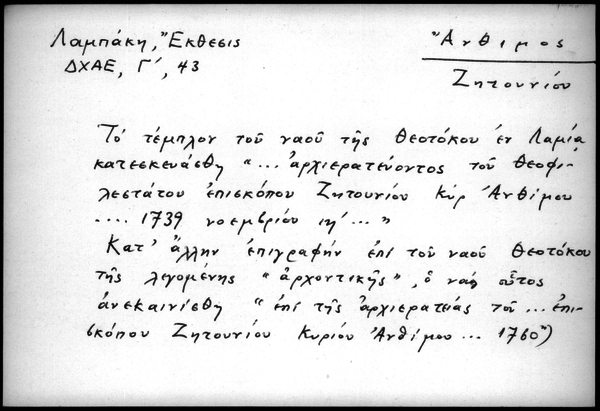 Λαμπάκη, Ἔκθεσις
ΔΧΑΕ, Γ΄, 43
Ἄνθιμος
Ζητουνίου
Τό τέμπλον τοῦ ναοῦ τῆς Θεοτόκου ἐν Λαμίᾳ
κατεσκευάσθη "... ἀρχιερατεύοντος τοῦ θεοφι-
λεστάτου ἐπισκόπου Ζητουνίου κύρ Ἀνθίμου
.... 1739 νοεμβρίου ιη΄..."
Κατ' ἄλλην ἐπιγραφήν ἐπί τοῦ ναοῦ Θεοτόκου
τῆς λεγομένης "ἀρχοντικῆς", ὁ ναός οὗτος
ἀνεκαινίσθη "ἐπί τῆς ἀρχιερατείας τοῦ ... ἐπι-
σκόπου Ζητουνίου Κυρίου Ἀνθίμου ... 1760")